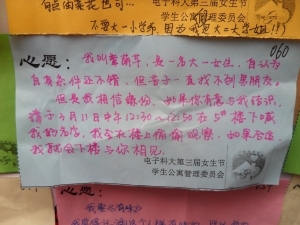 能由菜花也可…
不要大一小学弟,因为我是大一大学姐!!)
电子科大第三届女生节
学生公寓管理委员会
060
心愿:我叫 是一名大一女生,自认为
自身条件还不错,但苦于一直找不到男朋友。
但是我相信缘份,如果你有意与我结识,
请于3月11日中午12:30~12:50在5#楼下喊
我的名字,我会在楼上偷偷观察,如果合适
我就会下楼与你相见。
电子科大第三届女生节
学生公寓管理委员会
心愿: